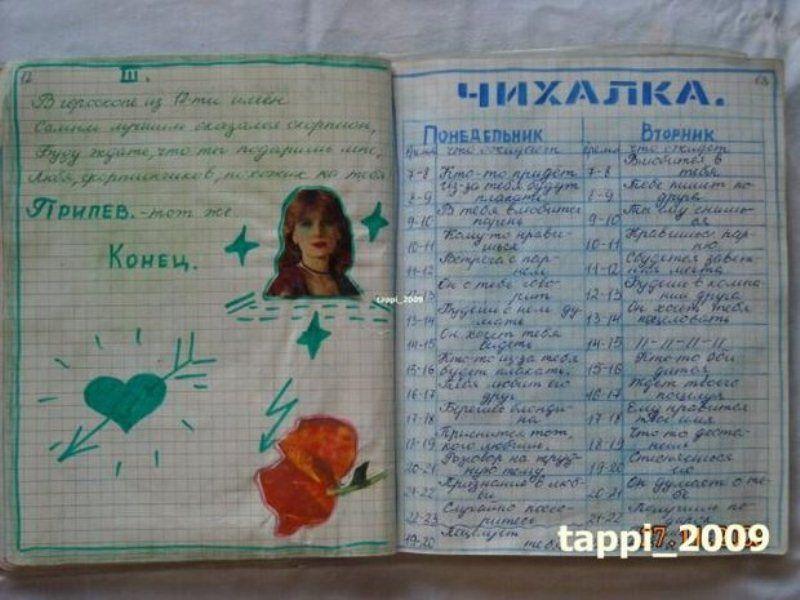 12
III.
В гороскопе из 12-ти имён
Самым лучшим оказался скорпион,
Буду ждать, что ты подаришь мне,
Любя, скорпиончиков, похожих на тебя
ПРИПЕВ. - тот же
КОНЕЦ.
tappi_2009
ЧИХАЛКА.
ПОНЕДЕЛЬНИК
ВТОРНИК
время что ожидает
время что ожидает
7-8 Кто-то придёт
7-8 Влюбится в тебя
8-9 Из-за тебя будут плакать
8-9 Тебе пишет по-
9-10 В тебя влюбится парень
9-10 Ты ему снишь-
ся
10-11 Кому-то нрави-
шься
10-11 Нравишься пар-
ню
11-12 Встреча с пар-
нем
11-12 Сбудется завет-
ная мечта
12-13 Он о тебе гово-
рит
12-13 Будешь в компа-
нии друга
13-14 Будешь о нём ду-
мать
13-14 Он хочет тебя
поцеловать
14-15 Он хочет тебя
видеть
14-15 11-11-11-11
15-16 Кто-то из-за тебя
будет плакать.
15-16 Кто-то оби-
дится
16-17 Тебя любит его
друг
16-17 Ждёт твоего
поцелуя
17-18 Берегись блонди-
на
17-18 Ему нравится
имя
18-19 Приснится тот,
кого любишь.
18-19 Что-то доста-
нешь
20-21 Разговор на труд-
ную тему
19-20 Стесняешься
его
21-22 Признание в люб-
ви
20-21 Он думает о те-
бе
22-23 Случайно поссо-
ритесь
21-22 Получишь по-
19-20 Поцелует
тебя
tappi_2009